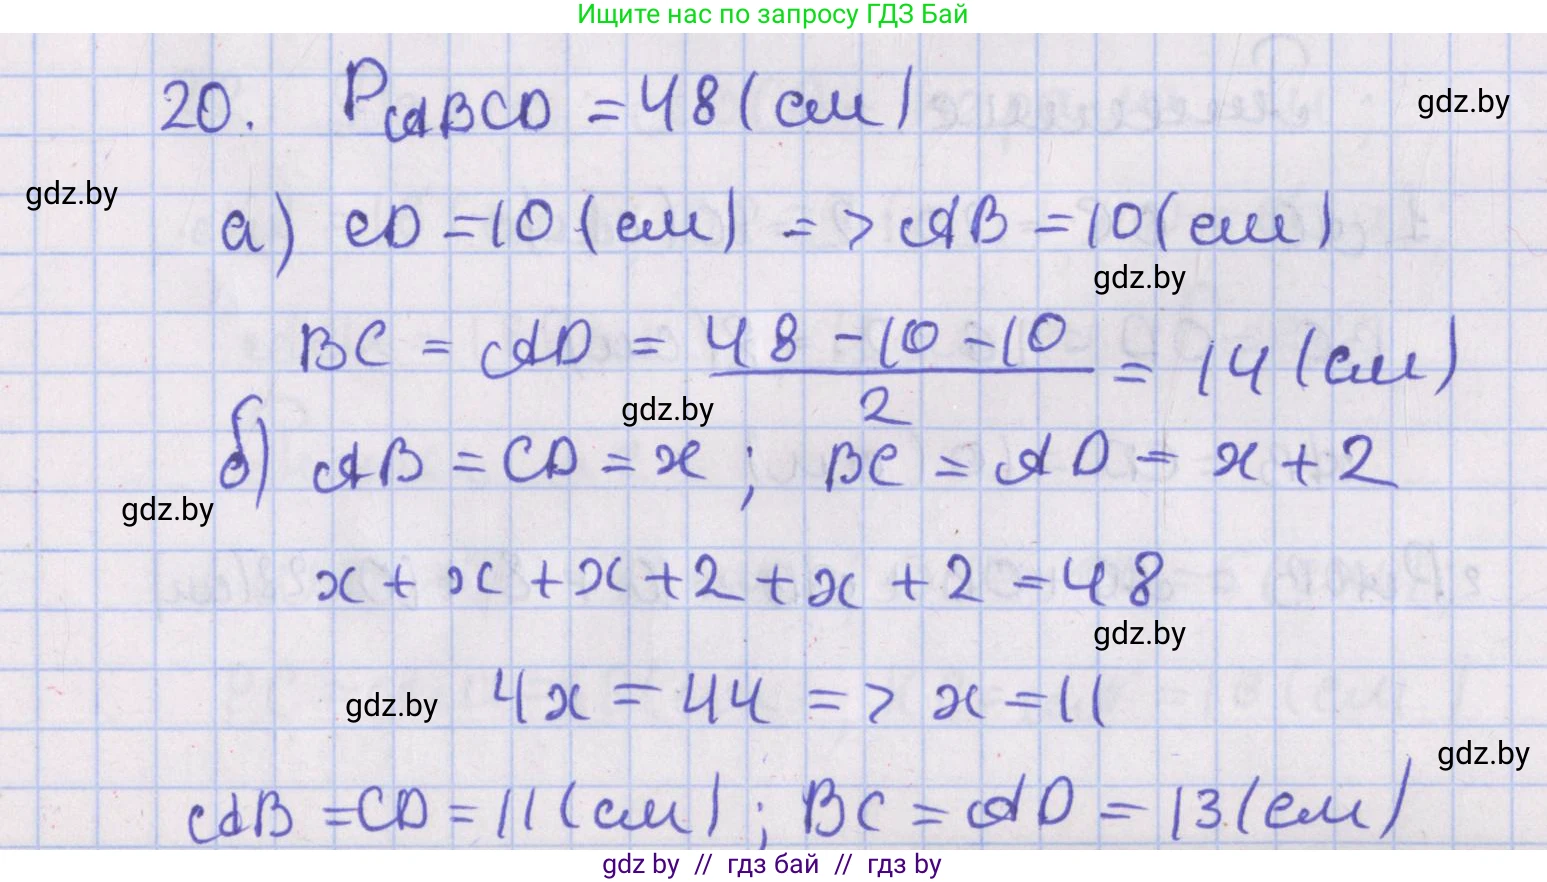 Ищите нас по запросу ГДЗ Бай
20. PABCD = 48 (см)
gdz.by
gdz.by
а) CD = 10 (см) => AB = 10 (см)
gdz.by
BC = AD = (48 - 10 - 10)/2 = 14 (см)
gdz.by
б) AB = CD = x; BC = AD = x + 2
gdz.by
x + x + x + 2 + x + 2 = 48
gdz.by
4x = 44 => x = 11
gdz.by
gdz.by
AB = CD = 11 (см); BC = AD = 13 (см)
gdz.by // гдз бай // гдз by